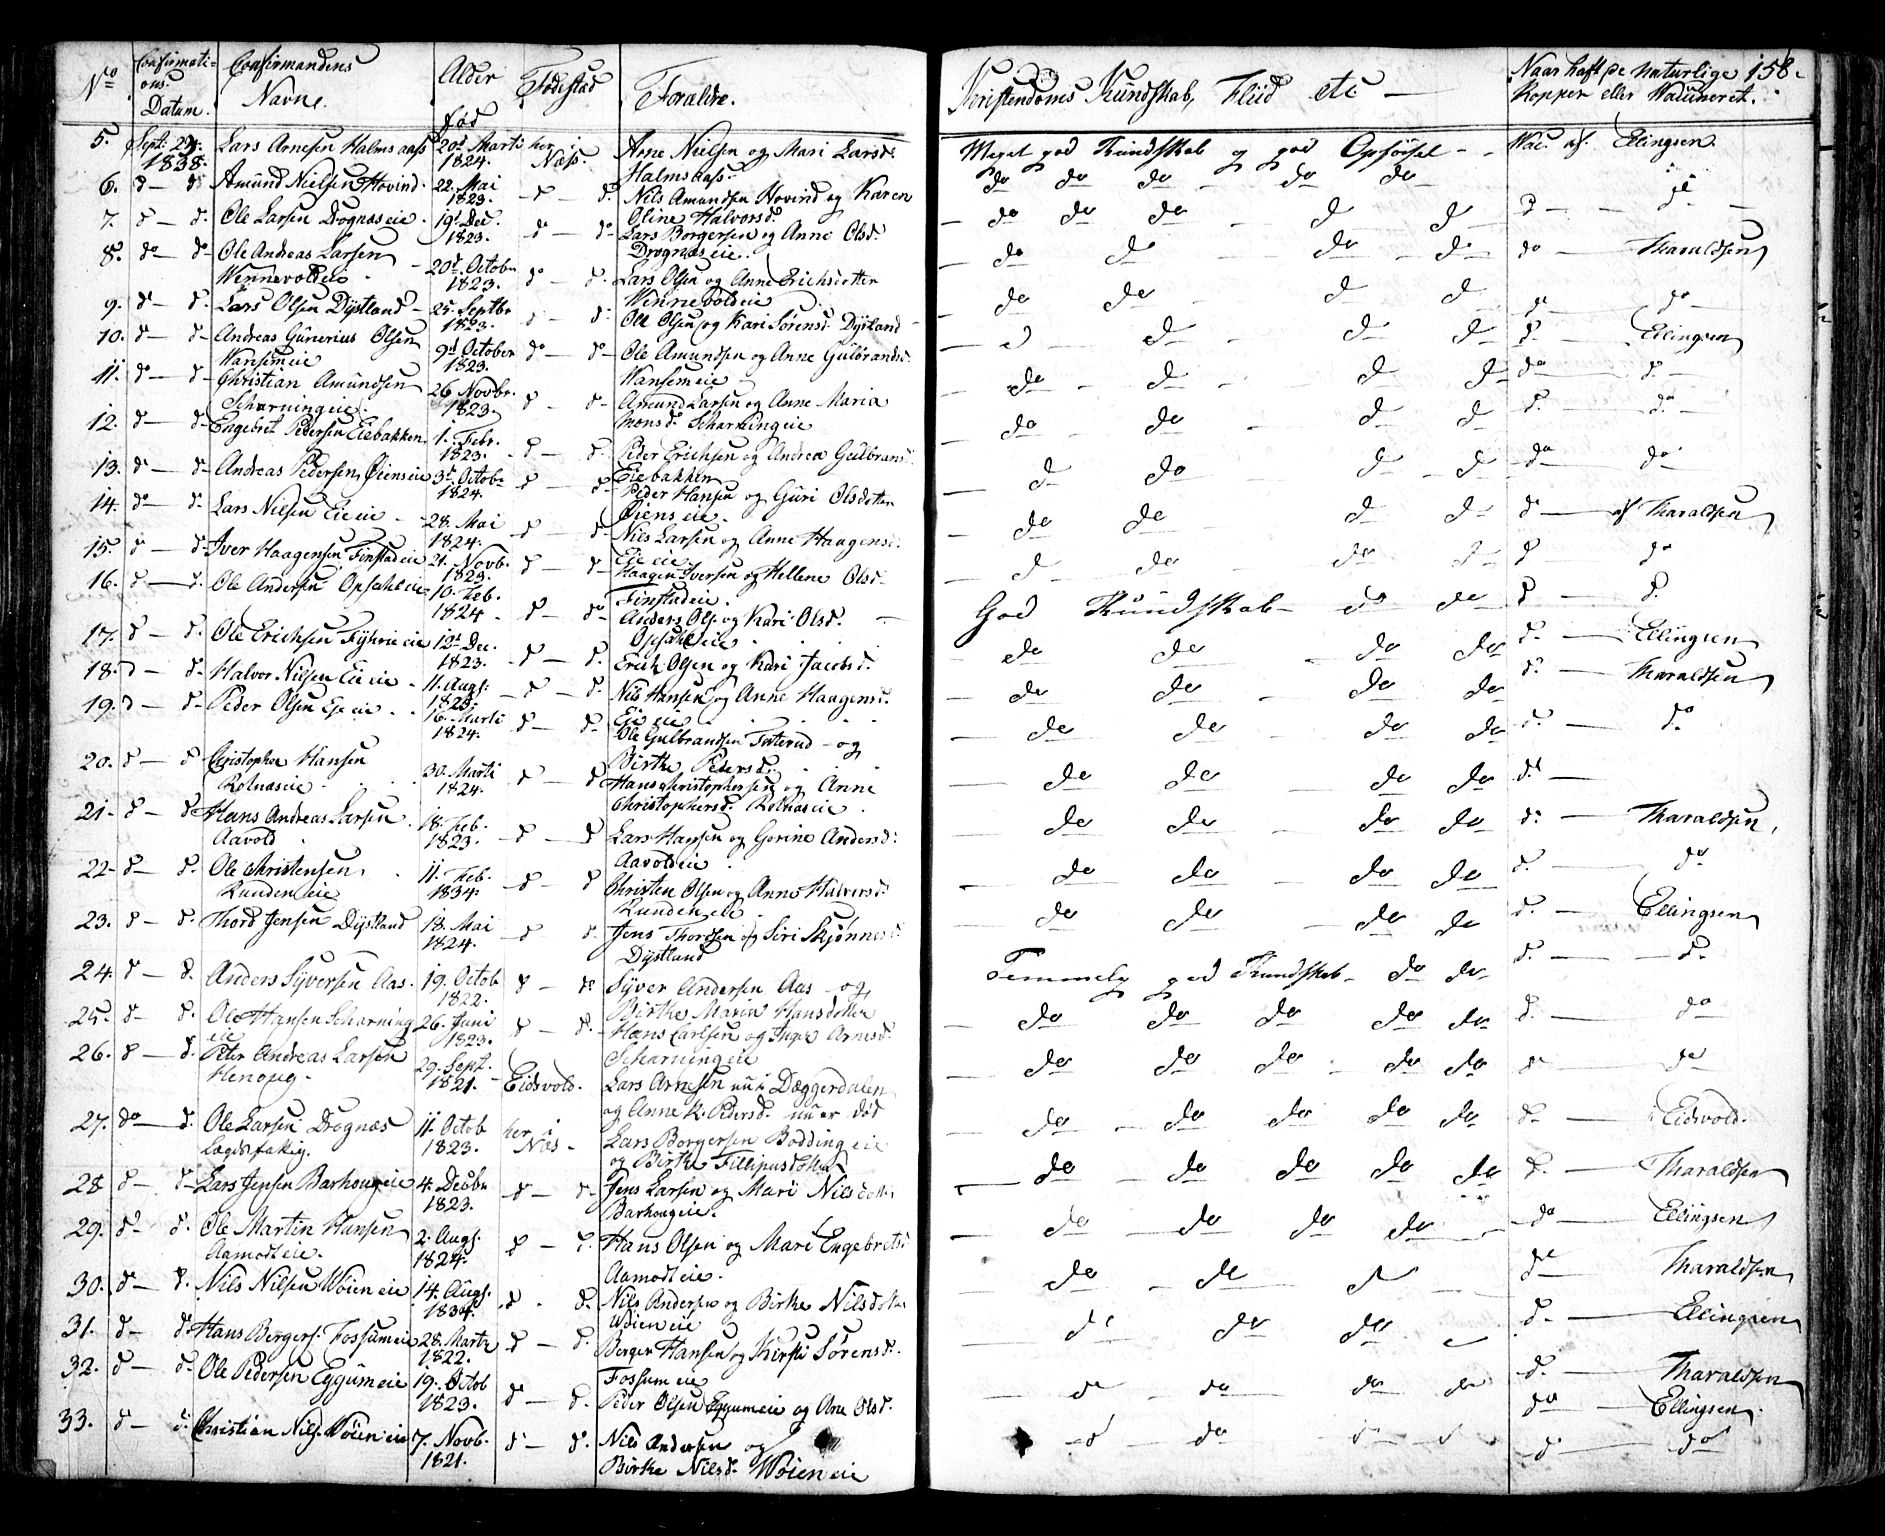 No Confirmati= ons. Datum. Confirmandens Navne. Alder fød Fødested Forældre. Christendoms Kundskab, Fliid etc — Naar haft de naturlige Kopper eller Vaccineret. 158.
5. Sept. 29. 1838. Lars Arnesen Halmsaas 20de Marti 1824. her i Næss. Arne Nielsen og Mari Larsd. Halmsaas. Meget god Kundskab og god Opførsel - - Vac. af Ellingsen.
6. d — d Amund Nielsen Hovind. 22. Mai 1823. - d — d. Nils Amundsen Hovind og Karen Oline Halvorsd. do do do - do do
7. d — d. Ole Larsen Drognæseie. 19d Dec. 1823. do — do Lars Borgersen og Anne Olsd. Drognæseie. - do do do - d d d — —
8. do — do Ole Andreas Larsen Wennevoldeie - 20d. Octobr 1823. do — d. Lars Olsen og Anne Erichsdotter Wennevoldeie do do do do do — Tharaldsen
9. d — d. Lars Olsen Dystland - 25. Septbr 1823. d — d. Ole Olsen og Kari Sørensd. Dystland - do do - d d do do
10. d — d- Andreas Gunerius Olsen Hansemeie 9d October 1823. do — do Ole Amundsen og Anne Gulbrandsd. Hansemeie - d d - d d d. — Ellingsen
11. do — d- Christian Amundsen Scharningeie. 26 Novbr. 1823. d — d- Amund Larsen og Anne Maria Monsd. Scharningeie do - d - d d do — d. -
12. d — do Engebret Pedersen Eiebakken 1. Febr. 1823. - d — d. Peder Erichsen og Andrea Gulbrans Eiebakken - do do - d d d. — do -
13. d — d- Andreas Pedersen Øienseie 3d. Octobr 1824. d — do Peder Hansen og Guri Olsdotter Øienseie. — d do d - d do do
14. do — d. Lars Nilsen Eieeie - - 28. Mai 1824. d — d. Nils Larsen og Anne Haagensd. Eieeie - do do - d d d — af Tharaldsen
15. d — d. Iver Haagensen Finstadeie 21. Novb. 1823. d — d- Haagen Iversen og Hellene Olsd- Finstadeie. - d. do - do d d do
16. d — d. Ole Andersen Opsahleie 10. Feb. 1824 - d — do Anders Ols. og Kari Olsd. Opsahleie God Kundskab - do do d d.
17. d — d. Ole Erichsen Fyhrieie 12d Dec. 1823. - d — d. Erich Olsen og Kari Jacobsd. - do do - do do d. — Ellingsen
18. d — d. Halvor Nilsen Eieeie - 11. Augs. 1823. - d — d. Nils Hansen og Anne Haagensd. Eieeie - do do - do do d. — Tharaldsen
19. d — d- Peder Olsen Eieeie - - 16. Marti 1824. d — d- Ole Gulbrandsen Fæterud - og Birthe Pedersd. - do do - do do d. — do
20. d — d Christopher Hansen Rolnæseie 30. Marti 1824. d — d Hans Christophersen og Anne Christophersd. Rolnæseie — do do — do do d. —
21. d — d Hans Andreas Larsen Aavold 18. Feb. 1823. - d — d Lars Hansen og Gorine Andersd. Aavoldeie - do do - do do d. — Tharaldsen
22. d — d. Ole Christensen Rundeneie - 11. Feb. 1834. - d — d Christen Olsen og Anne Halvorsd. Rundeneie - do do - do do d. — do
23. d — d. Thord Jensen Dystland 18. Mai 1824. - d d. Jens Thordsen og Siri Skjønnesd. Dystland - do do - do do d. — Ellingsen
24. d — d. Anders Syversen Aas. 19. Octob 1822. d — do Syver Andersen Aas - og Birthe Maria Hansdotter Temmelig god Kundskab - do do - d. — d.
25. d — d. Ole Hansen Scharning eie 26. Juni 1823. d — d. Hans Carlsen og Inger Arnesd. Scharningeie - do do do do do d. — do
26. d — d. Peter Andreas Larsen Henoug - 29. Sept. 1821. - Eidsvold. Lars Arnesen nu i Dæggerdalen og Anne K. Pedersd. nu er død - do do do - do do do — do
27. do — d. Ole Larsen Drognæs Lægdsfattig. 11 Octob 1823. her i Næs - Lars Borgersen Boddingeie og Birthe Fillipusdotter - do - do do do do d. — Eidsvold.
28 d — d- Lars Jensen Barhougeie 4. Decbr 1823. - d — d- Jens Larsen og Mari Nilsdotter Barhougeie. — do - do do do do d. — Tharaldsen
29. d — d. Ole Martin Hansen Aamodteie. 2. Augs. 1824. d — d. Hans Olsen og Mari Engebretsd Aamodteie. — do - do do do do — Ellingsen
30. d — d. Nils Nilsen Wøieneie 14. Augs. 1834. d - d. Nils Andersen og Birthe Nilsdotter Wøieneie — do - do — d do — Tharaldsen
31. d — d. Hans Bergers. Fossumeie 28. Marti 1822. d — d. Berger Hansen og Kirsti Sørensd. Fossumeie — do do do - d. — Ellingsen
32. d — d. Ole Pedersen Eggumeie 19. Octob 1823. d — d. Peder Olsen Eggumeie og Ane Olsd. — d - do - do do d. — Tharaldsen
33. d — d. Christian Nils. Wøieneie 7. Novb. 1821. d — d. Nils Andersen og Birthe Nilsd. Wøieneie - d - do do — Ellingsen.
d — do